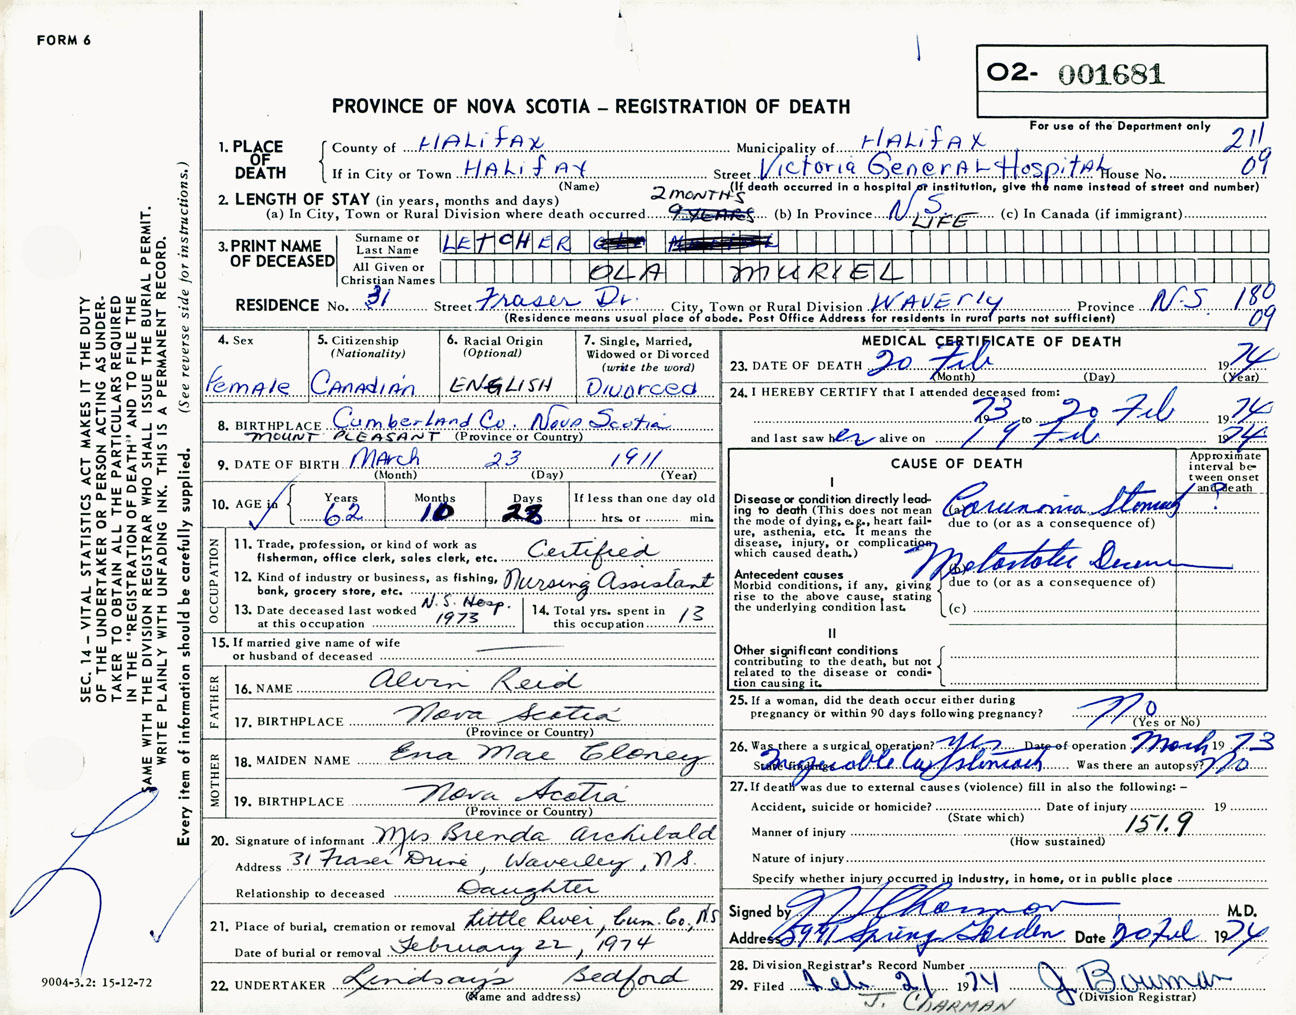 FORM 6
O2- 001681
PROVINCE OF NOVA SCOTIA – REGISTRATION OF DEATH
For use of the Department only
211
09
1. PLACE OF DEATH
County of HALifAX Municipality of HALifAX
If in City or Town HALifAX Street Victoria GENERAL HOSPITAL House No.
(Name) (If death occurred in a hospital or institution, give the name instead of street and number)
2. LENGTH OF STAY (in years, months and days) 2 MONTHS
(a) In City, Town or Rural Division where death occurred 9 YEARS (b) In Province N.S. LIFE (c) In Canada (if immigrant)
3. PRINT NAME OF DECEASED
Surname or Last Name LETCHER
All Given or Christian Names OLA MURIEL
RESIDENCE No. 31 Street Fraser Dr. City, Town or Rural Division WAVERLY Province N.S. 180
09
(Residence means usual place of abode. Post Office Address for residents in rural parts not sufficient)
4. Sex
Female
5. Citizenship (Nationality)
Canadian
6. Racial Origin (Optional)
ENGLISH
7. Single, Married, Widowed or Divorced (write the word)
Divorced
8. BIRTHPLACE Cumberland Co. Nova Scotia
MOUNT PLEASANT (Province or Country)
9. DATE OF BIRTH March 23 1911
(Month) (Day) (Year)
10. AGE in
Years Months Days If less than one day old
62 10 28 hrs. or min.
OCCUPATION
11. Trade, profession, or kind of work as fisherman, office clerk, sales clerk, etc. Certified
12. Kind of industry or business, as fishing, bank, grocery store, etc. Nursing Assistant
13. Date deceased last worked at this occupation N.S. Hosp. 1973
14. Total yrs. spent in this occupation 13
15. If married give name of wife or husband of deceased
FATHER
16. NAME Alvin Reid
17. BIRTHPLACE Nova Scotia
(Province or Country)
MOTHER
18. MAIDEN NAME Ena Mae Cloney
19. BIRTHPLACE Nova Scotia
(Province or Country)
20. Signature of informant Mrs Brenda Archibald
Address 31 Fraser Drive, Waverley, N.S.
Relationship to deceased Daughter
21. Place of burial, cremation or removal Little River, Cum. Co, NS
Date of burial or removal February 22, 1974
22. UNDERTAKER Lindsay's Bedford
(Name and address)
MEDICAL CERTIFICATE OF DEATH
23. DATE OF DEATH 20 Feb 1974
(Month) (Day) (Year)
24. I HEREBY CERTIFY that I attended deceased from:
73 to 20 Feb 1974
and last saw her alive on 19 Feb 1974
CAUSE OF DEATH
Approximate interval between onset and death
I
Disease or condition directly leading to death (This does not mean the mode of dying, e.g., heart failure, asthenia, etc. It means the disease, injury, or complication which caused death.)
(a) Carcinoma Stomach ?
due to (or as a consequence of)
Antecedent causes
Morbid conditions, if any, giving rise to the above cause, stating the underlying condition last.
(b) Metastatic Disease
due to (or as a consequence of)
(c)
II
Other significant conditions
contributing to the death, but not related to the disease or condition causing it.
25. If a woman, did the death occur either during pregnancy or within 90 days following pregnancy? No
(Yes or No)
26. Was there a surgical operation? Yes Date of operation March 1973
State findings Inoperable Ca Stomach Was there an autopsy? No
27. If death was due to external causes (violence) fill in also the following: –
Accident, suicide or homicide? Date of injury 19
(State which) 151.9
Manner of injury
(How sustained)
Nature of injury
Specify whether injury occurred in industry, in home, or in public place
Signed by M.D.
Address 5991 Spring Garden Date 20 Feb 1974
28. Division Registrar's Record Number
29. Filed Feb. 21 1974 J Bowman
(Division Registrar)
J. CHARMAN
SEC. 14 – VITAL STATISTICS ACT MAKES IT THE DUTY
OF THE UNDERTAKER OR PERSON ACTING AS UNDER-
TAKER TO OBTAIN ALL THE PARTICULARS REQUIRED
IN THE "REGISTRATION OF DEATH" AND TO FILE THE
SAME WITH THE DIVISION REGISTRAR WHO SHALL ISSUE THE BURIAL PERMIT.
WRITE PLAINLY WITH UNFADING INK. THIS IS A PERMANENT RECORD.
Every item of information should be carefully supplied. (See reverse side for instructions.)
9004-3.2: 15-12-72